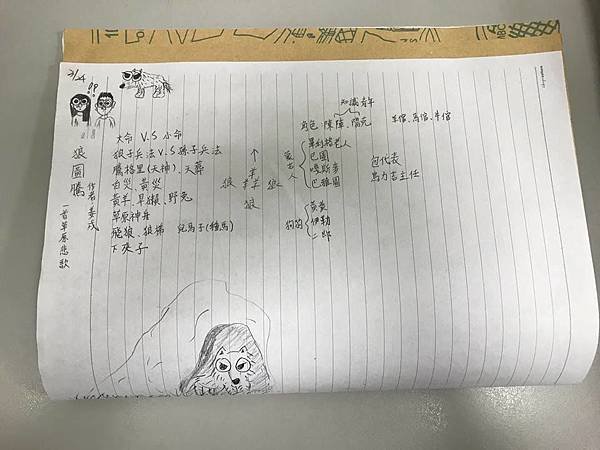 狼圖騰
作者:姜戎
一首草原悲歌
大命 V.S 小命
狼子兵法 V.S 孫子兵法
騰格里(天神)、天葬
白災、黃災
黃羊、旱獺、野兔
草原神舟
飛狼、狼梯 兒馬子(種馬)
下夾子
↑
狼 羊羊 狼
狼
知識青年
角色:陳陣、楊克 羊倌、馬倌、牛倌
蒙古人
畢利格老人
巴圖
嘎斯麥
巴雅圖
包代表
烏力吉主任
狗狗
黃黃
伊勒
二郎